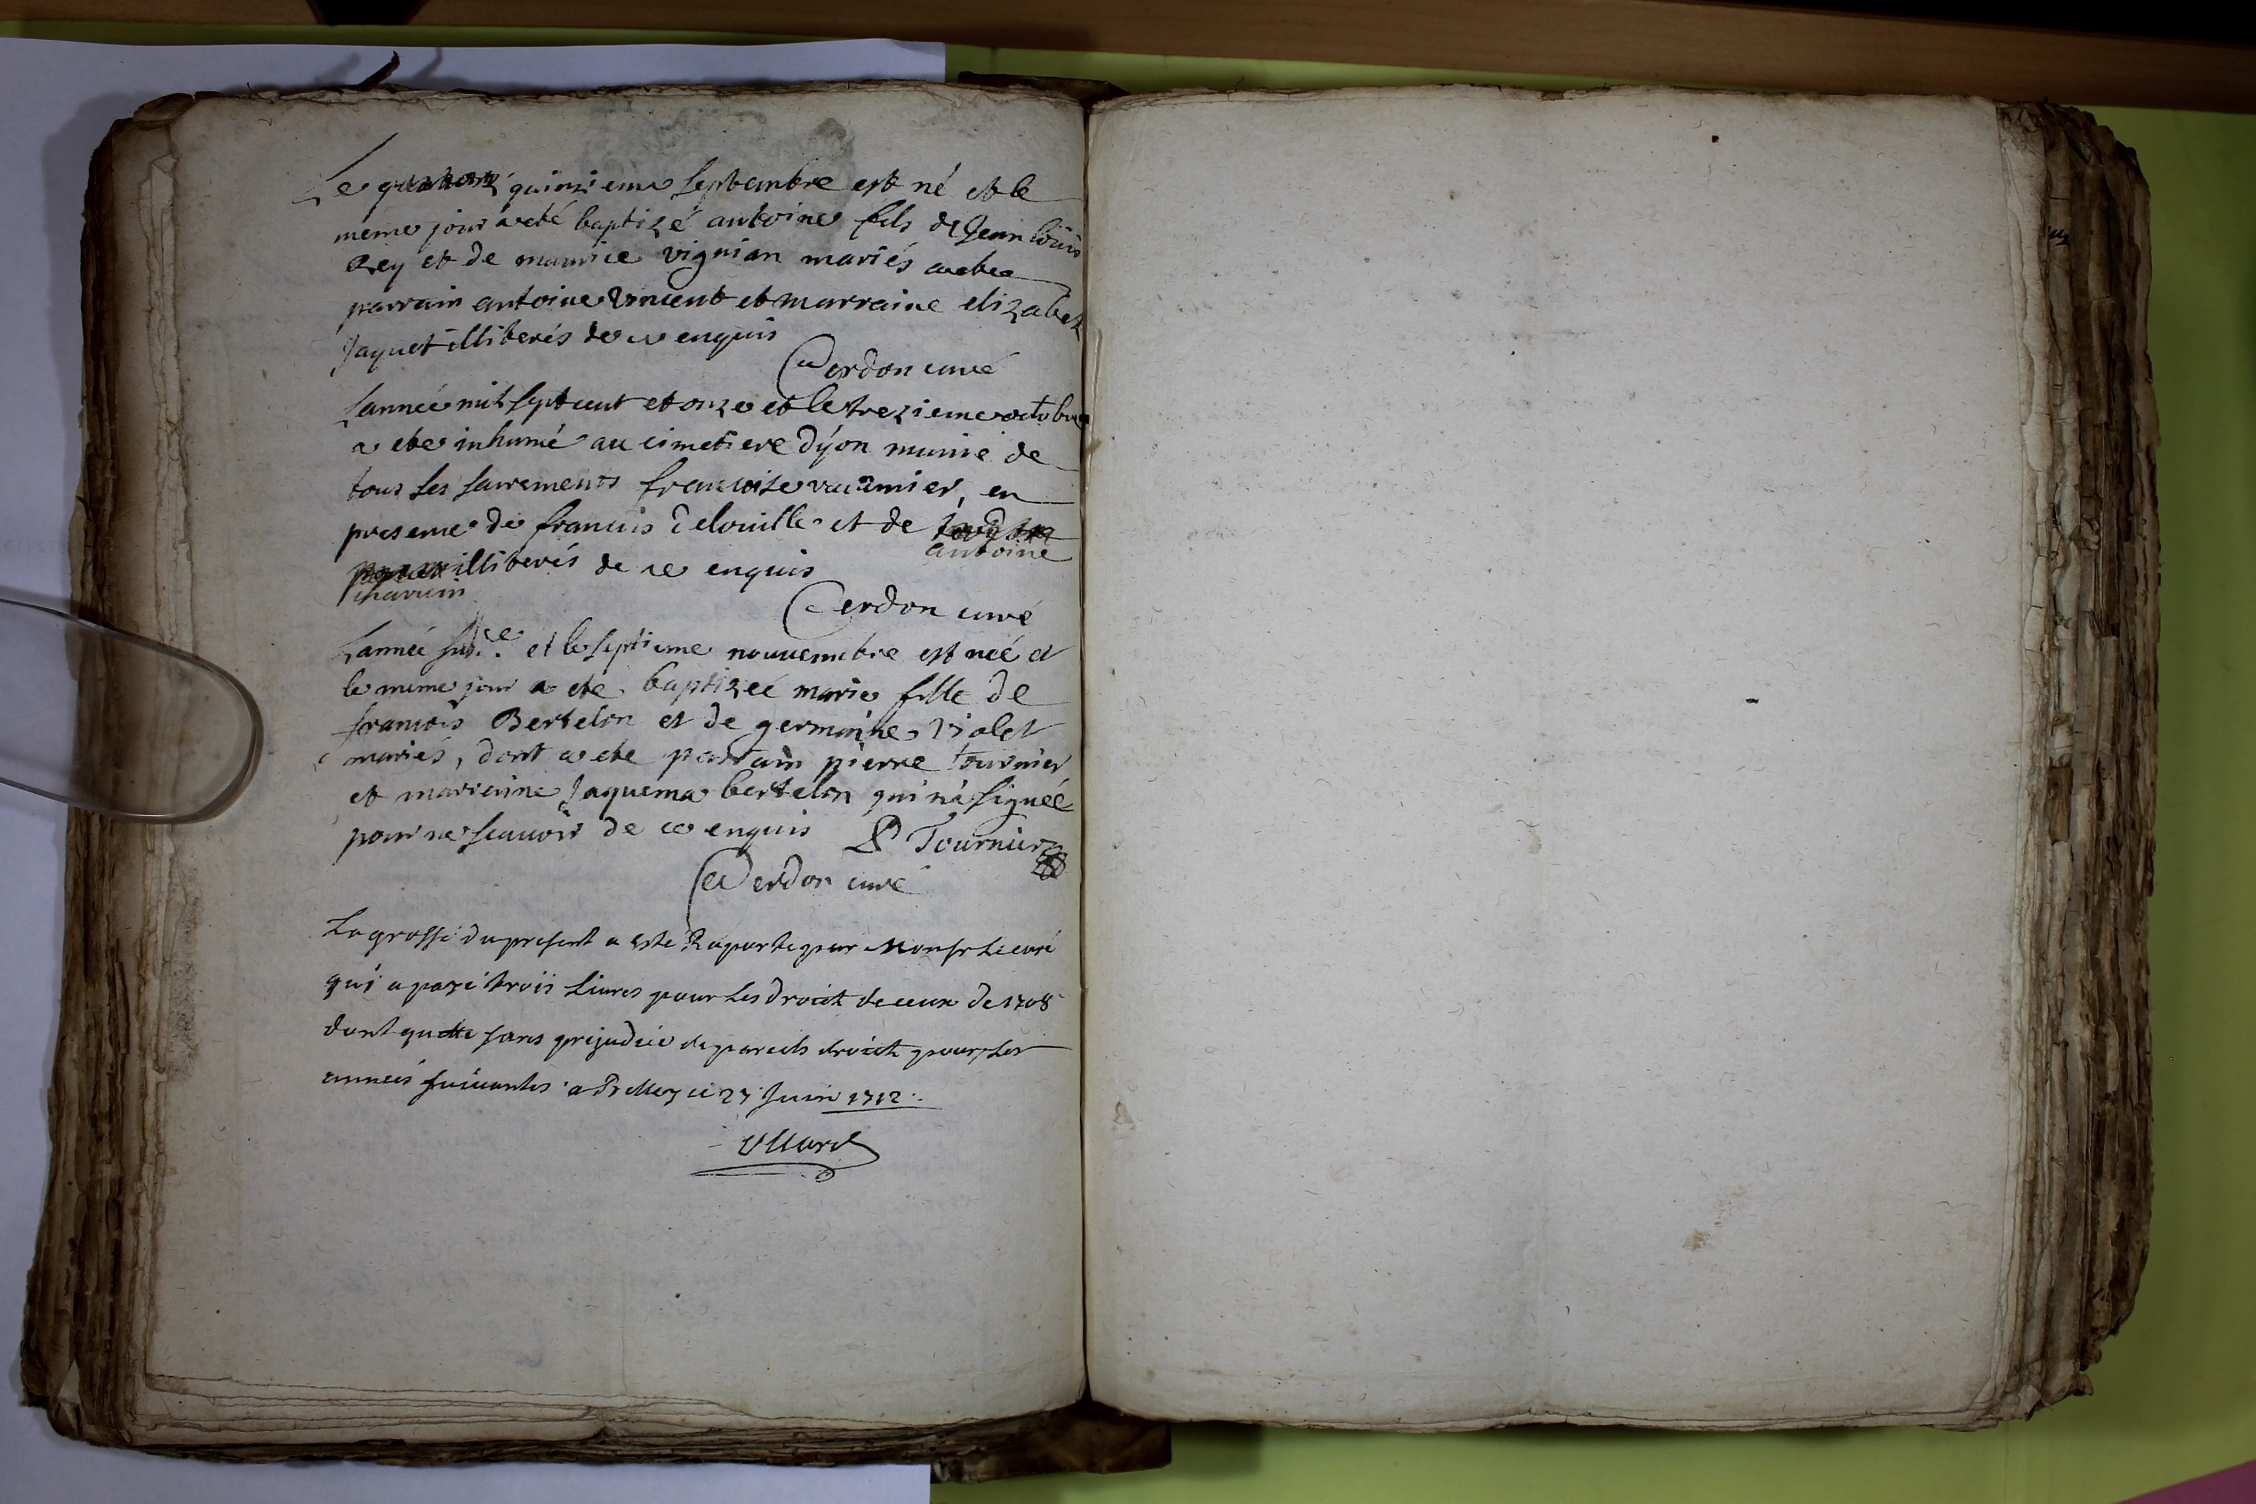 Le quinzieme septembre est né et le
meme jour a eté baptizé antoine fils de Jean loüis
Rey et de maurice vignian mariés a ete
parrain antoine vincent et marraine elizabet
Jaquet illiterés de ce enquis
Cerdon curé
Lannée mil sept cent et onze et le trezieme octobre
a ete inhumé au cimetiere dÿon munie de
tous ses sacrements francoise en
presence de francois delouille et de
antoine
illiterés de ce enquis
charvin
Cerdon curé
Lannée susd.e et le septieme nouvembre est neé et
le meme jour a eté baptizeé marie fille de
francois Bertelon et de germaine violet
mariés, dont a ete parrain pierre tournier
et marienne Jaquema bertelon qui n'a signeé
pour ne scauoir de ce enquis P Tournier
Cerdon curé
La grosse du present a esté Raporte par Monsr le curé
qui a payé trois liures pour les droit de ceux de 1708
dont quitte sans prejudice de pareils droit pour les
anneés suiuantes a Belley ce 27 Juin 1712.